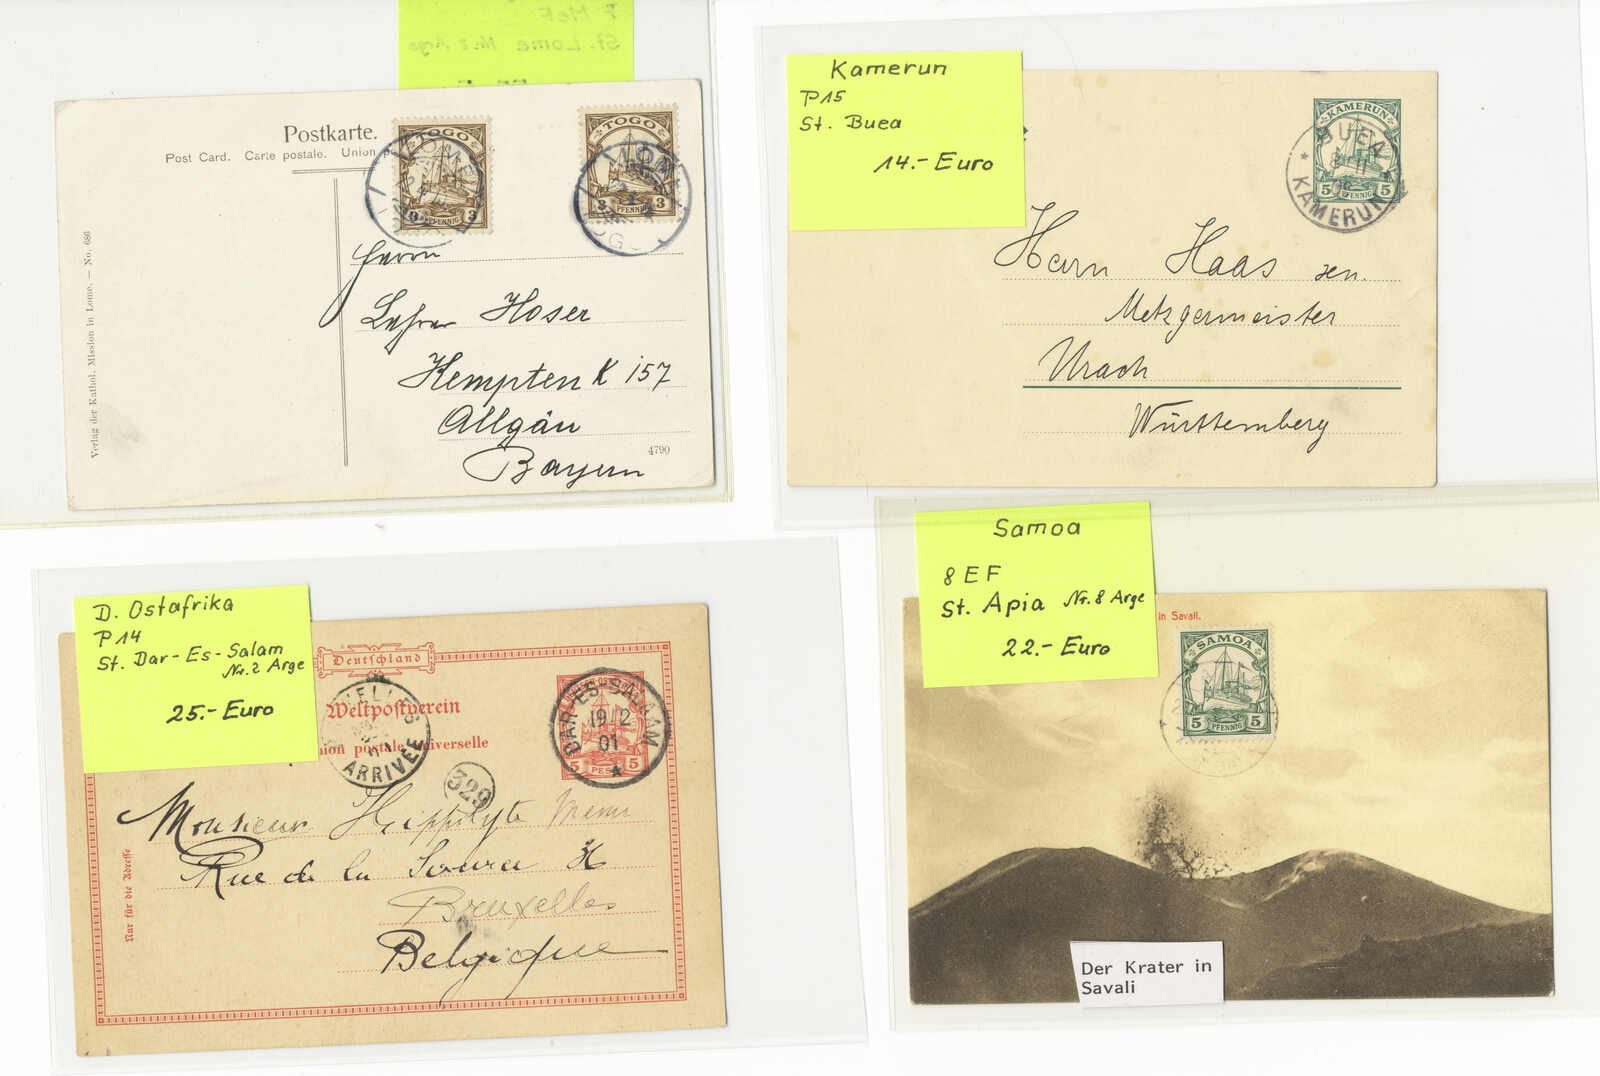 Postkarte.
Post Card. Carte postale. Union
TOGO
3 PFENNIG 3
TOGO
3 PFENNIG 3
LOME
Herrn
Lehrer Hoser
Kempten K 157
Allgäu
Bayern
4790
Verlag der Kathol. Mission in Lome. — No. 686
Kamerun
P15
St. Buea
14.- Euro
KAMERUN
5 PFENNIG 5
BUEA
KAMERUN
Herrn Haas sen.
Metzgermeister
Urach
Württemberg
D. Ostafrika
P14
St. Dar-Es-Salam
Nr. 2 Arge
25.- Euro
Deutschland
Weltpostverein
nion postale universelle
ARRIVEE
329
DAR-ES-SALAAM
19/2
01
5 PESA
Monsieur Hippolyte
Rue de la
Bruxelles
Belgique
Nur für die Adresse
Samoa
8 EF
St. Apia Nr. 8 Arge
22.- Euro
in Savali.
SAMOA
5 PFENNIG 5
Der Krater in
Savali